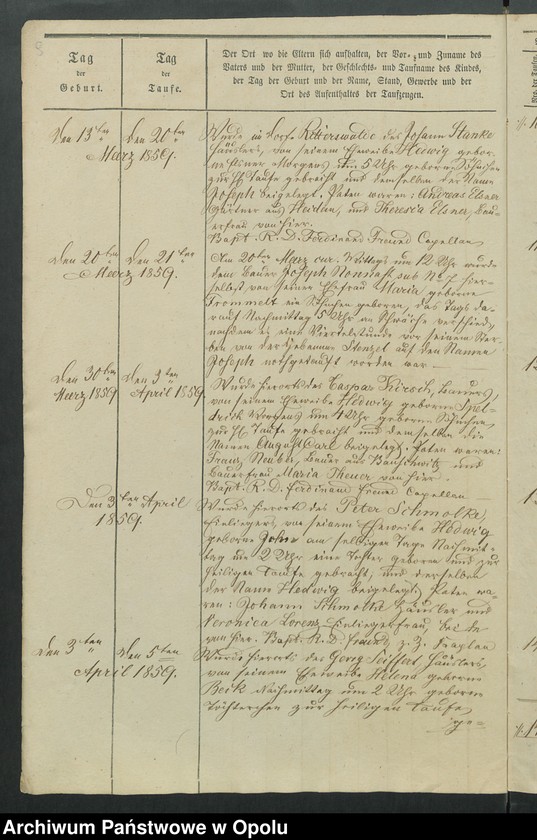 Tag
der
Geburt.
Tag
der
Taufe.
Der Ort wo die Eltern sich aufhalten, der Vor- und Zuname des
Vaters und der Mutter, der Geschlechts- und Taufname des Kindes,
der Tag der Geburt und der Name, Stand, Gewerbe und der
Ort des Aufenthaltes der Taufzeugen.
Den 13ten
März 1859.
Den 20ten
Wurde in Dorf Ritterswalde des Johann Stanke
Häuslers, von seinem Eheweibe Hedwig gebor-
ne Morgens um 5 Uhr geborne Söhnchen
zur Hl. Taufe gebracht und demselben der Name
Joseph beigelegt. Paten waren: Andreas Elsner
Gärtner aus und Theresia Elsner, Bau-
erfrau von hier.
Bapt. R. D. Ferdinand Freund Capellan
Den 20ten
März 1859.
Den 21ten
Am 20ten März cur. Mittags um 12 Uhr wurde
dem Bauer Joseph sub No 7. hier-
selbst von seiner Ehefrau Maria geborne
Trommelt ein Söhnchen geboren, das Tags da-
rauf Nachmittag 5 Uhr an Schwäche verschied,
nachdem es eine Viertelstunde vor seinem Ster-
ben von der Hebamme Stenzel auf den Namen
Joseph nothgetauft worden war —
Den 30ten
März 1859
Den 3ten
April 1859.
Wurde hierorts des Caspar Kirsch, Bauers,
von seinem Eheweibe Hedwig geborne
Morgens um 4 Uhr geborne Söhnchen
zur Hl. Taufe gebracht und demselben die
Namen August Carl beigelegt. Paten waren:
Franz Neuber, Bauer aus Bauschwitz und
Bauerfrau Maria Theuer von hier.
Bapt. R. D. Ferdinand Freund Capellan —
Den 3ten April
1859.
Wurde hierorts des Peter Schmolke,
Einliegers, von seinem Eheweibe Hedwig
geborne John am selbigen Tage Nachmit-
tag um 2 Uhr eine Tochter geboren und zur
heiligen Taufe gebracht, und derselben
der Name Hedwig beigelegt. Paten wa-
ren: Johann Schmolke Häusler und
Veronica Lorenz Einliegerfrau, beide
von hier. Bapt. R. D. Freund, z. Z.
Den 3ten
April 1859.
Den 5ten
Wurde hierorts des Georg Seiffert Häuslers,
von seinem Eheweibe Helena geborne
Beik Nachmittag um 2 Uhr geborne
Töchterchen zur heiligen Taufe
ge-
Archiwum Państwowe w Opolu